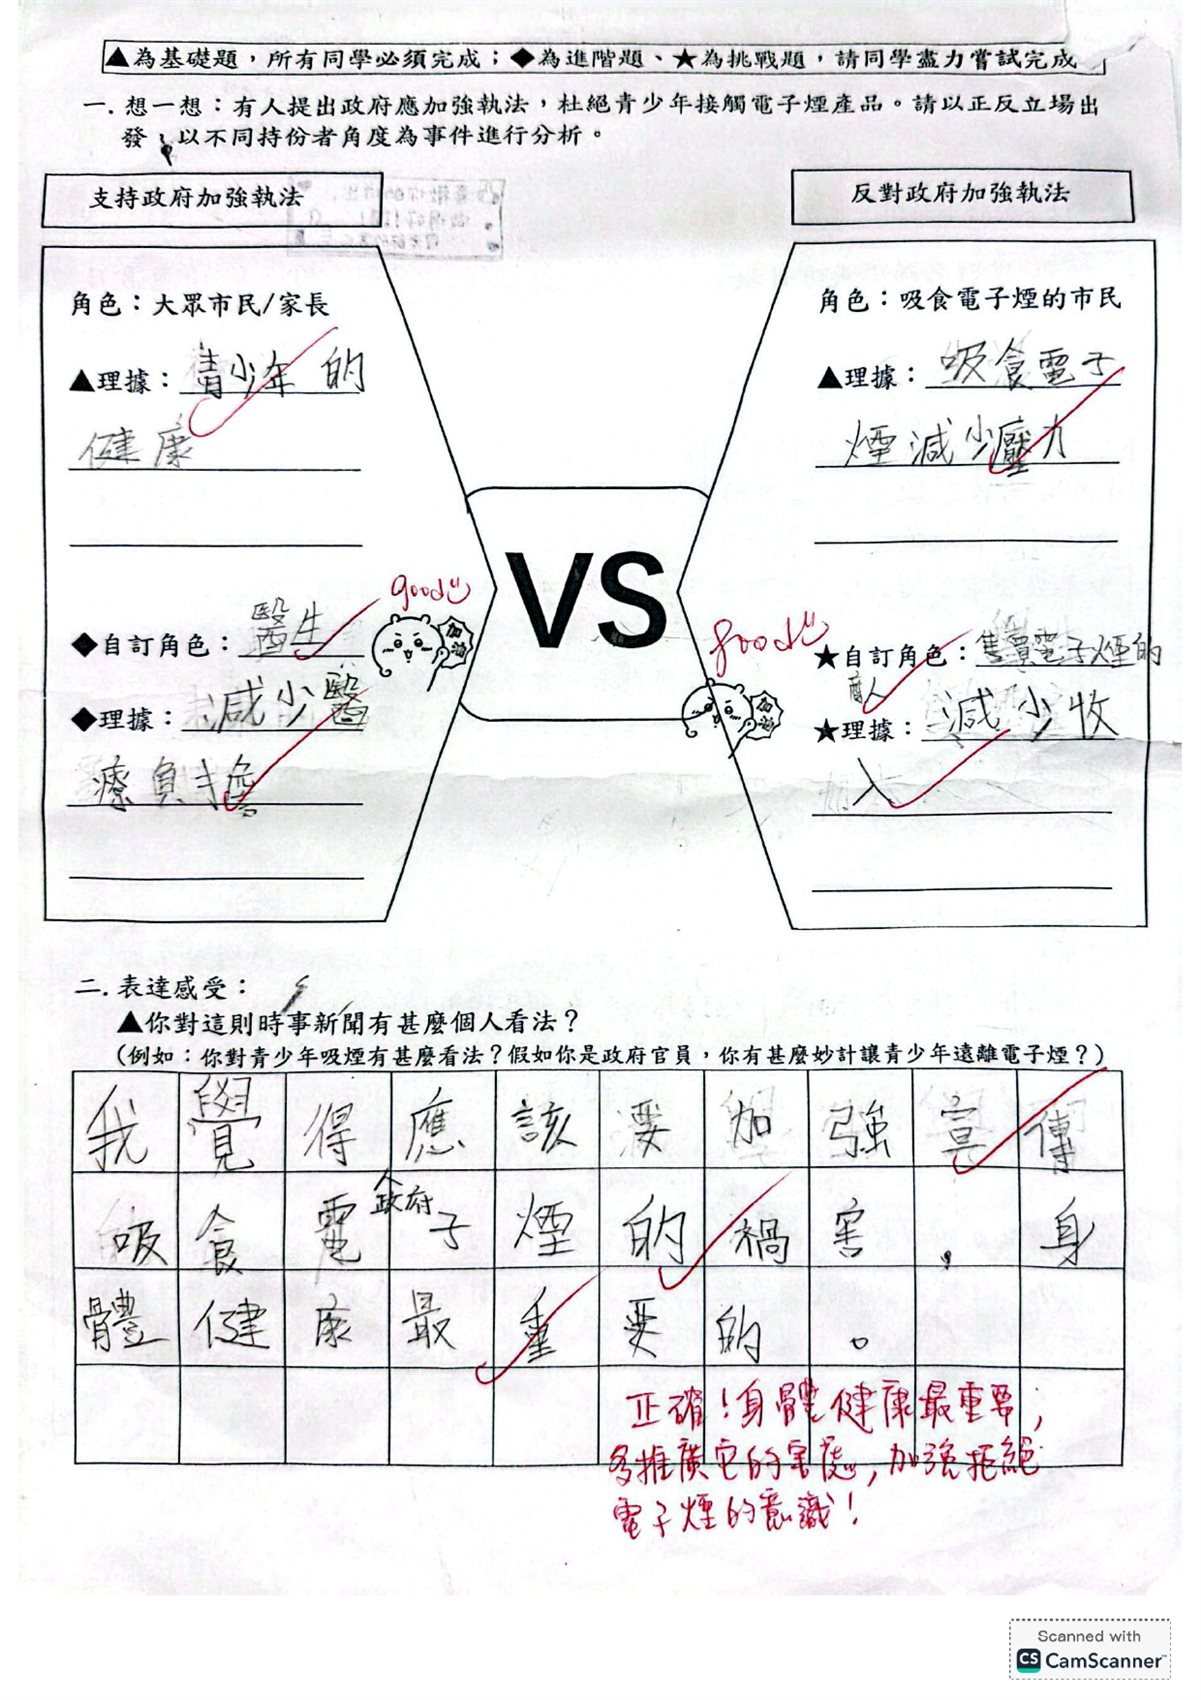 ▲為基礎題，所有同學必須完成；◆為進階題、★為挑戰題，請同學盡力嘗試完成
一. 想一想：有人提出政府應加強執法，杜絕青少年接觸電子煙產品。請以正反立場出
發，以不同持份者角度為事件進行分析。
支持政府加強執法
角色：大眾市民/家長
▲理據：青少年的
健康
◆自訂角色：醫生
good
加油
◆理據：減少醫
療負擔
VS
反對政府加強執法
角色：吸食電子煙的市民
▲理據：吸食電子
煙減少壓力
good
加油
★自訂角色：售賣電子煙的
商人
★理據：減少收
入
二. 表達感受：
▲你對這則時事新聞有甚麼個人看法？
(例如：你對青少年吸煙有甚麼看法？假如你是政府官員，你有甚麼妙計讓青少年遠離電子煙？)
我覺得應該要加強宣傳
政府
吸食電子煙的禍害，身
體健康最重要的。
正確！身體健康最重要，
多推廣它的害處，加強拒絕
電子煙的意識！
Scanned with
CS CamScanner